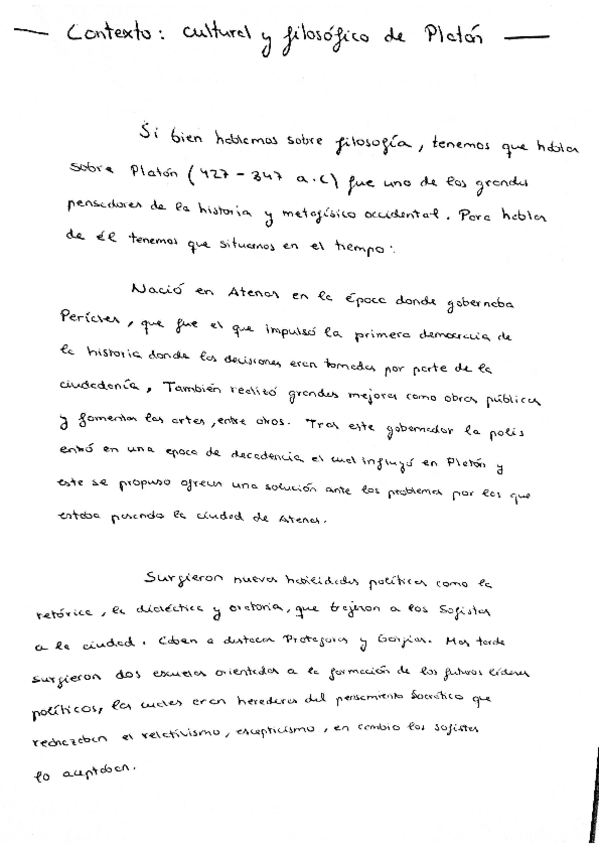 Contexto: cultural y filosófico de Platón
Si bien hablamos sobre filosofía, tenemos que hablar
sobre Platón (427 - 347 a.C) fue uno de los grandes
pensadores de la historia y metafísico occidental. Para hablar
de él tenemos que situarnos en el tiempo:
Nació en Atenas en la época donde gobernaba
Pericles, que fue el que impulsó la primera democracia de
la historia donde las decisiones eran tomadas por parte de la
ciudadanía, También realizó grandes mejoras como obras públicas
y fomentar las artes, entre otros. Tras este gobernador la polis
entró en una epoca de decadencia el cual influyó en Platón y
este se propuso ofrecer una solución ante los problemas por los que
estaba pasando la ciudad de Atenas.
Surgieron nuevas habilidades políticas como la
retórica, la dialéctica y oratoria, que trajeron a los Sofistas
a la ciudad. Caben a destacar Protagoras y Gorgias. Mas tarde
surgieron dos escuelas orientadas a la formación de los futuros líderes
políticos, las cuales eran herederas del pensamiento Socrático que
rechazaban el relativismo, escepticismo, en cambio los sofistas
lo aceptaban.